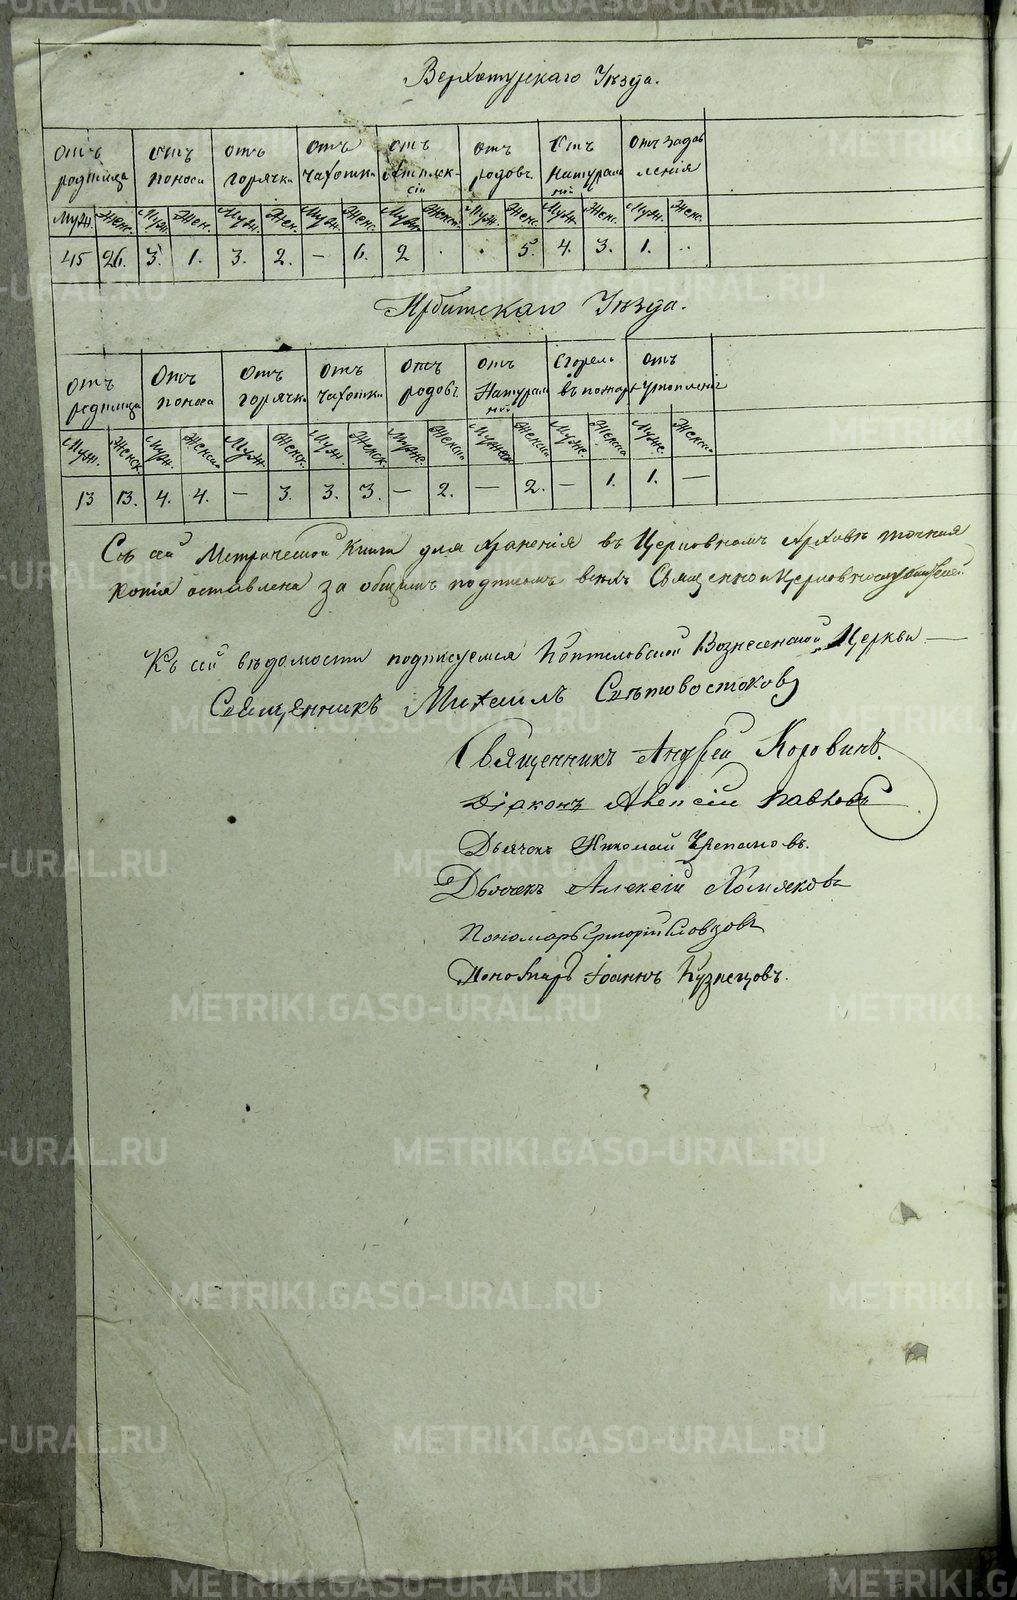 Верхотурскаго Уѣзда.
Отъ родимца | Отъ поноса | отъ горячки | отъ чахотки | отъ апоплексіи | отъ родовъ | Отъ Натуральной | отъ задавленія
Муж. | Жен. | Муж. | Жен. | Муж. | Жен. | Муж. | Жен. | Муж. | Женс. | Муж. | Жен. | Муж. | Жен. | Муж. | Жен.
45 | 26. | 3. | 1. | 3. | 2. | — | 6. | 2 | . | . | 5. | 4. | 3. | 1. | ..
Ирбитскаго Уѣзда.
Отъ родимца | Отъ поноса | Отъ горячки | Отъ чахотки | отъ родовъ | отъ Натуральной | Сгорели въ пожаръ | отъ утопленія
Муж. | Женск. | Муж. | Женск. | Муж. | Женск. | Муж. | Женск. | Муж. | Женск. | Мужеск. | Женск. | Муж. | Женск. | Муж. | Женск.
13 | 13. | 4. | 4. | — | 3. | 3. | 3. | — | 2. | — | 2. | — | 1. | 1. | —
Съ сей Метрической Книги для храненія въ Церковномъ Архивѣ точная
копія оставлена за общимъ подписомъ всехъ Священно и Церковнослужителей.
Къ сей вѣдомости подписуемся Коптеловской Вознесенской Церкви —
Священникъ Михаилъ Свѣтовостоковъ
Священникъ Андрей Коровинъ.
Діаконъ Алексій Павловъ
Дьячокъ Николай Черепановъ.
Дьячекъ Алексій Хомяковъ
Пономарь Григорій Словцовъ
Пономарь Іоаннъ Кузнецовъ.
METRIKI.GASO-URAL.RU